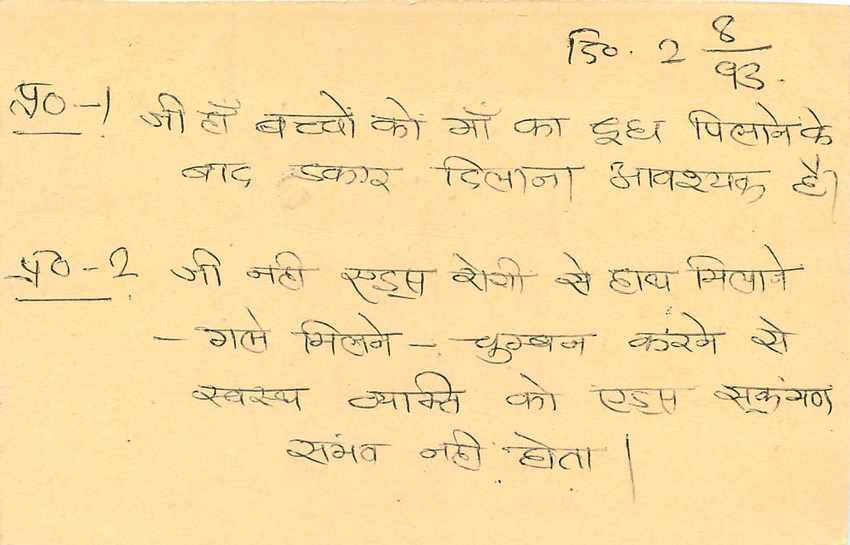 दि०. 2 8/93.
प्र०-1 जी हाँ बच्चों को माँ का दूध पिलाने के
बाद डकार दिलाना आवश्यक है।
प्र०-2 जी नही एड्स रोगी से हाथ मिलाने
- गले मिलने - चुम्बन करने से
स्वस्थ व्यक्ति को एड्स सक्रंमण
संभव नही होता।